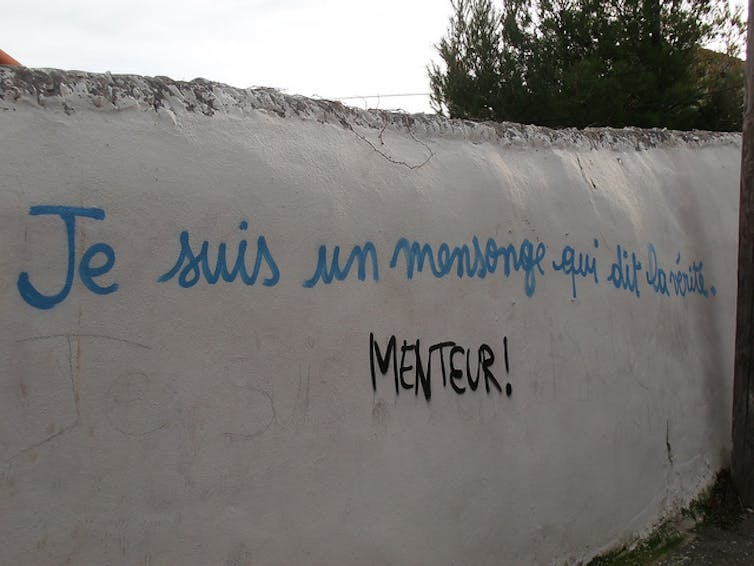 Je suis un mensonge qui dit la vérité.
MENTEUR!